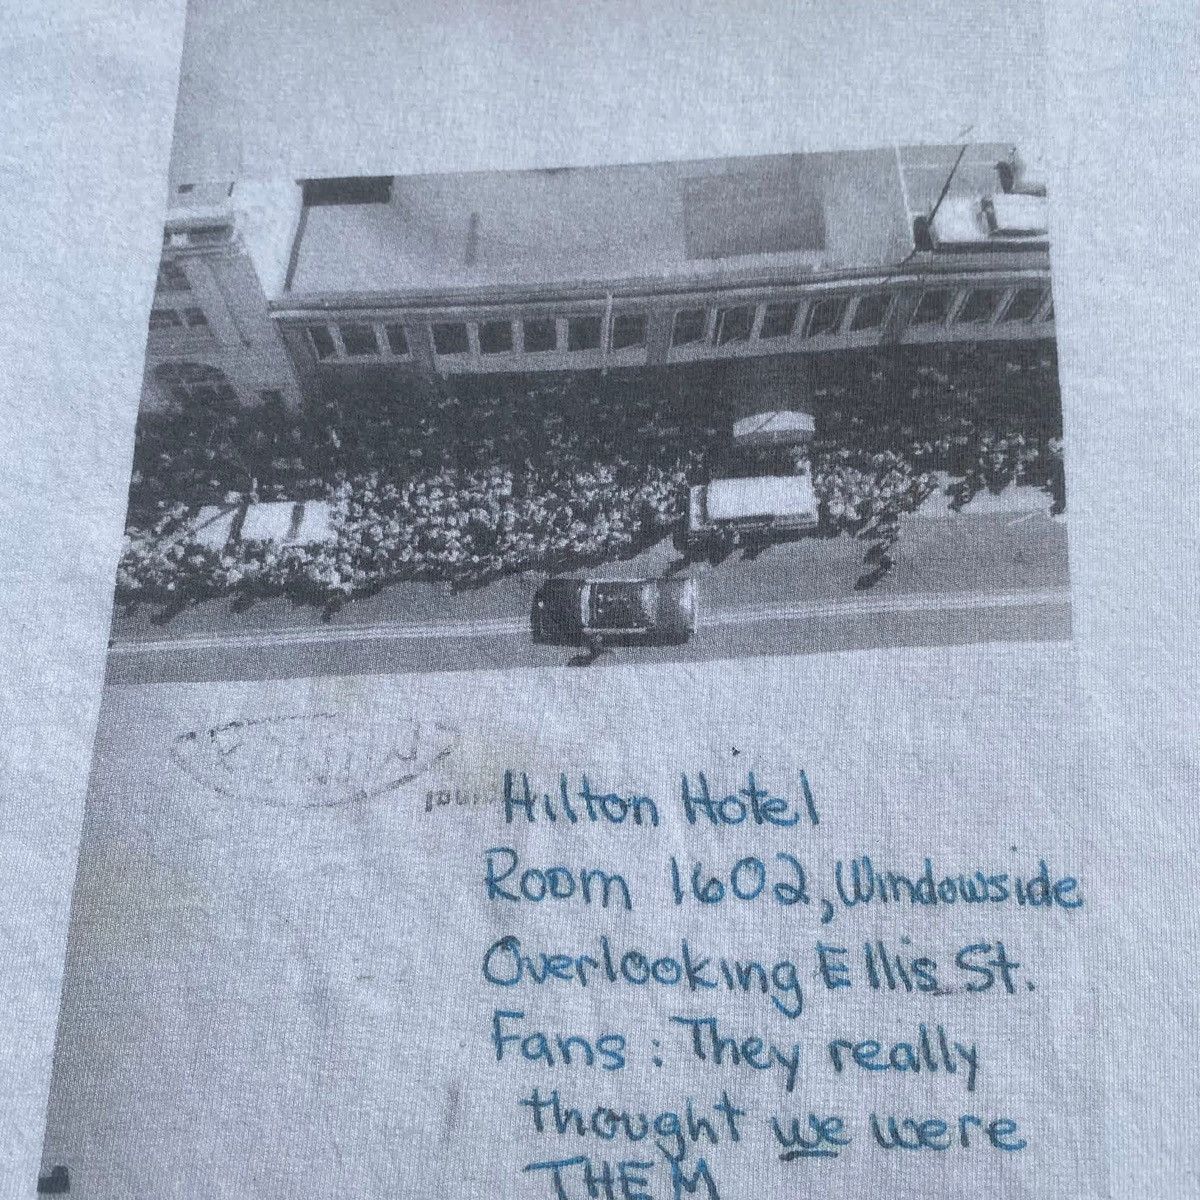 Hilton Hotel
Room 1602, Windowside
Overlooking Ellis St.
Fans : They really
thought we were
THEM